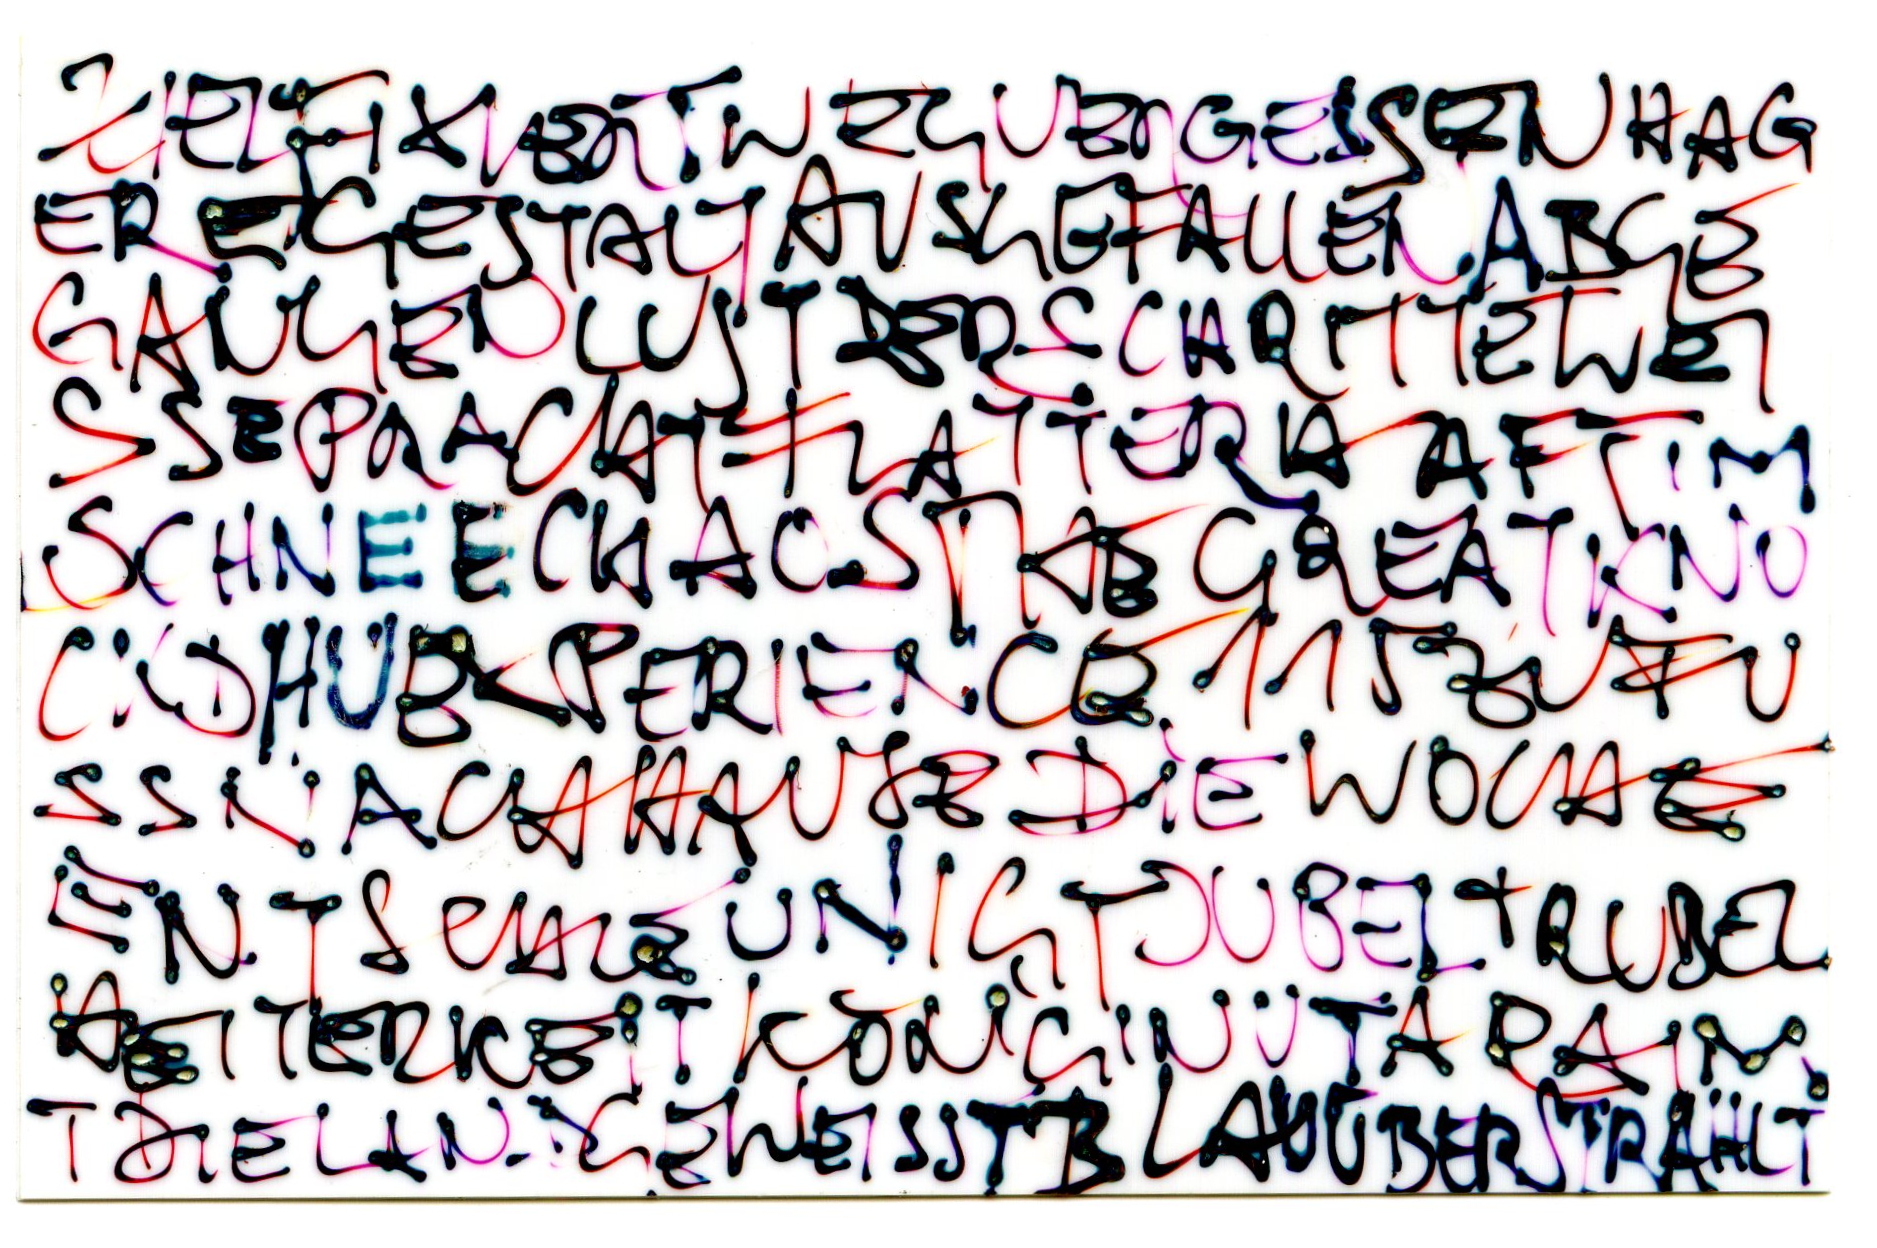 ZIELFIXVERTWEGVERGESSENHAG
EREGESTALTAUSGEFALLENABGE
GANGENLUSTDERSCHRITTEWEI
SSEPRACHTFLATTERHAFTIM
SCHNEECHAOSTHABGREATKNO
CKDHUBXPERIENCE115ZUFU
SSNACHHAUSEDIEWOCHE
ENTSCHLEUNIGTJUBELTRUBEL
HEITERKEITKÖNIGINUTARÄUM
TDIELANDGEWEISSTBLAUÜBERSTRÄHLT